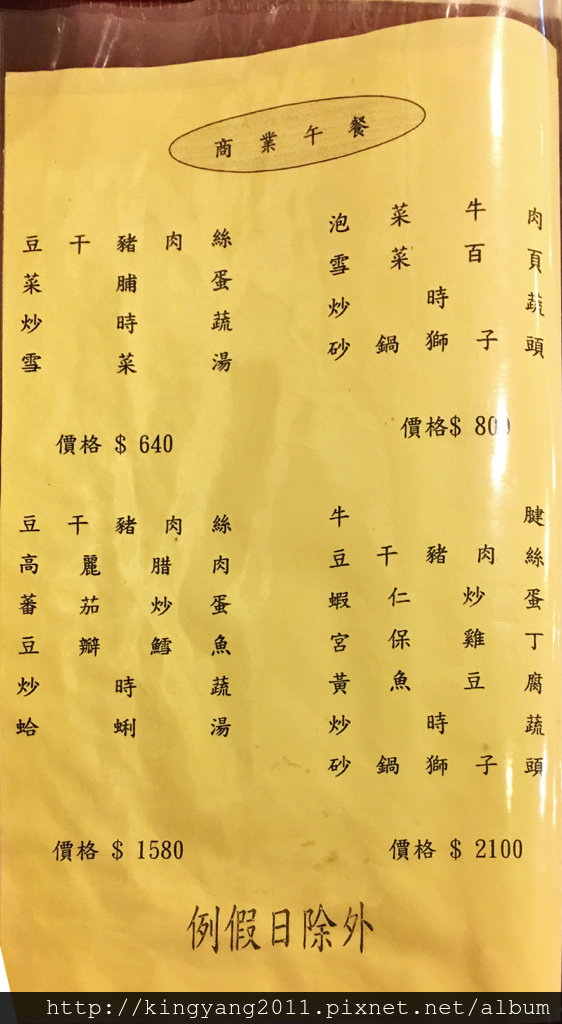 商業午餐
豆干豬肉絲
菜脯蛋
炒時蔬
雪菜湯
價格 $ 640
泡菜牛肉
雪菜百頁
炒時蔬
砂鍋獅子頭
價格$ 800
豆干豬肉絲
高麗腊肉
蕃茄炒蛋
豆瓣鱈魚
炒時蔬
蛤蜊湯
價格 $ 1580
牛腱
豆干豬肉絲
蝦仁炒蛋
宮保雞丁
黃魚豆腐
炒時蔬
砂鍋獅子頭
價格 $ 2100
例假日除外
http://kingyang2011.pixnet.net/album